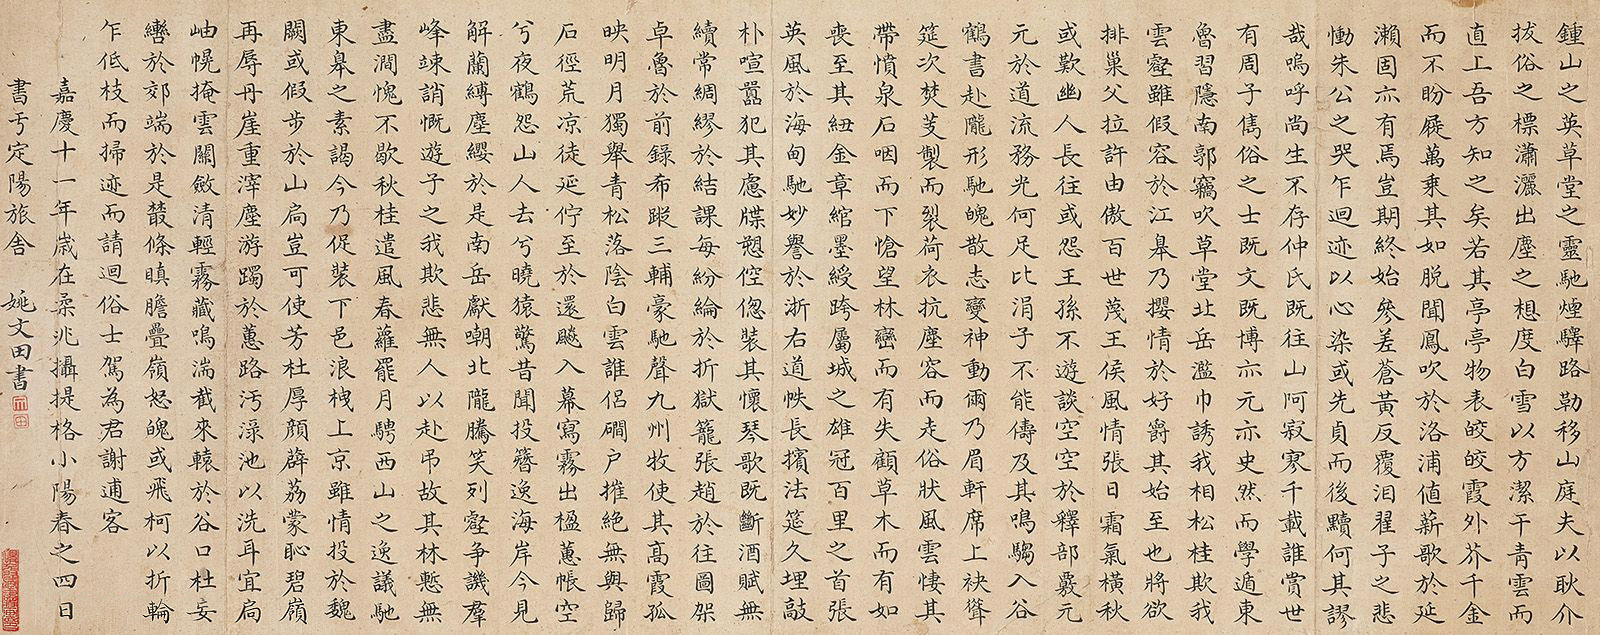 鍾山之英草堂之靈馳煙驛路勒移山庭夫以耿介
拔俗之標瀟灑出塵之想度白雪以方潔干青雲而
直上吾方知之矣若其亭亭物表皎皎霞外芥千金
而不盼屣萬乘其如脫聞鳳吹於洛浦值薪歌於延
瀨固亦有焉豈期終始參差蒼黃反覆泪翟子之悲
慟朱公之哭乍迴迹以心染或先貞而後黷何其謬
哉嗚呼尚生不存仲氏既往山阿寂寥千載誰賞世
有周子雋俗之士既文既博亦元亦史然而學遁東
魯習隱南郭竊吹草堂北岳濫巾誘我相松桂欺我
雲壑雖假容於江皋乃攖情於好爵其始至也將欲
排巢父拉許由傲百世蔑王侯風情張日霜氣橫秋
或歎幽人長往或怨王孫不遊談空空於釋部覈元
元於道流務光何足比涓子不能儔及其鳴騶入谷
鶴書赴隴形馳魄散志變神動爾乃眉軒席上袂聳
筵次焚芰製而裂荷衣抗塵容而走俗狀風雲悽其
帶憤泉石咽而下愴望林巒而有失顧草木而有如
喪至其紐金章綰墨綬跨屬城之雄冠百里之首張
英風於海甸馳妙譽於浙右道帙長擯法筵久埋敲
朴喧囂犯其慮牒愬倥傯裝其懷琴歌既斷酒賦無
續常綢繆於結課每紛綸於折獄籠張趙於往圖架
卓魯於前錄希蹤三輔豪馳聲九州牧使其高霞孤
映明月獨舉青松落陰白雲誰侶磵戶摧絕無與歸
石徑荒凉徒延佇至於還飇入幕寫霧出楹蕙帳空
兮夜鶴怨山人去兮曉猿驚昔聞投簪逸海岸今見
解蘭縛塵纓於是南岳獻嘲北隴騰笑列壑爭譏羣
峰竦誚慨遊子之我欺悲無人以赴弔故其林慙無
盡澗愧不歇秋桂遣風春蘿罷月騁西山之逸議馳
東皋之素謁今乃促裝下邑浪栧上京雖情投於魏
闕或假步於山扃豈可使芳杜厚顏薜荔蒙恥碧嶺
再辱丹崖重滓塵游躅於蕙路汚淥池以洗耳宜扃
岫幌掩雲關斂清輕霧藏鳴湍截來轅於谷口杜妄
轡於郊端於是叢條瞋膽疊嶺怒魄或飛柯以折輪
乍低枝而掃迹而請迴俗士駕為君謝逋客
嘉慶十一年歲在柔兆攝提格小陽春之四日
書于定陽旅舍　姚文田書